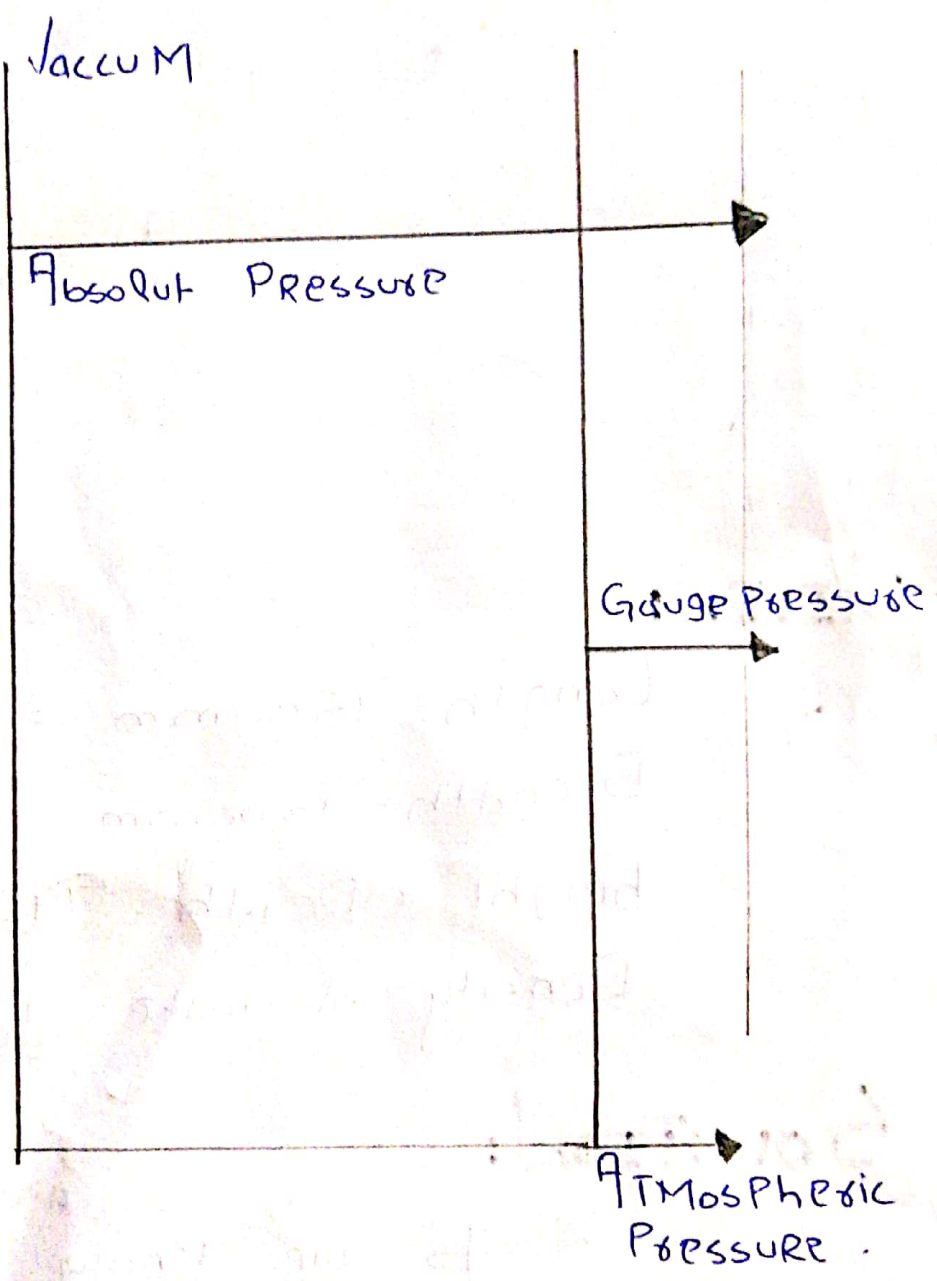 VaccuM
Absolut PRessure
Gauge Pressure
ATMosPheric
PressuRe.